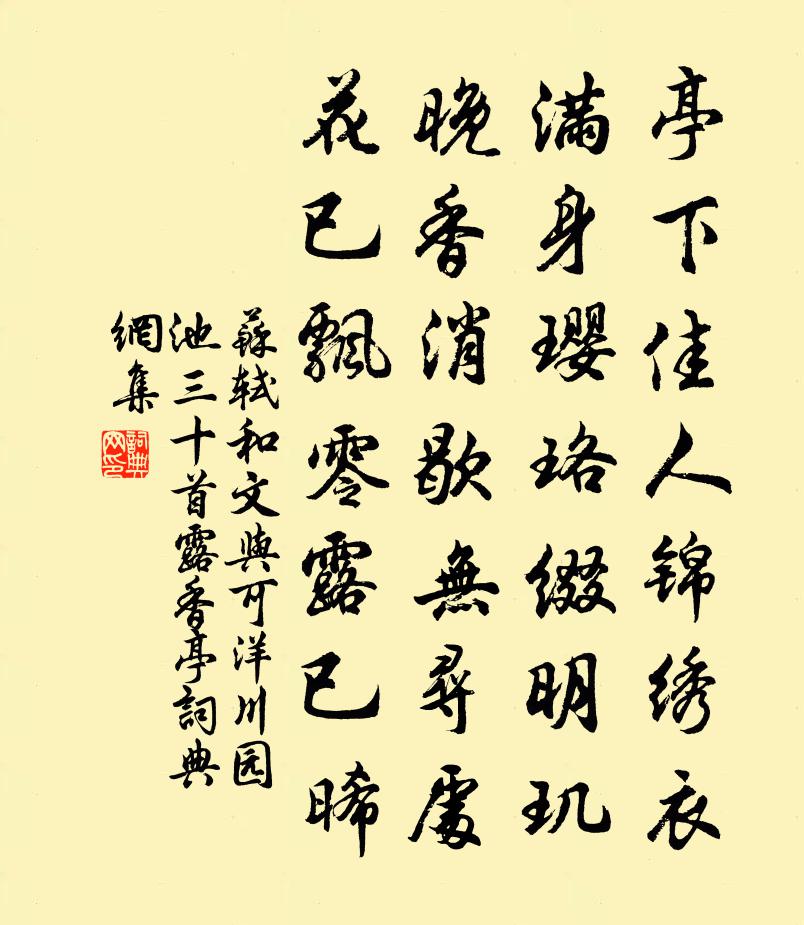 亭下佳人锦绣衣
满身璎珞缀明玑
晚香消歇無尋處
花已飄零露已晞
蘇軾和文與可洋川园
池三十首露香亭詞典
網集
詞典網印